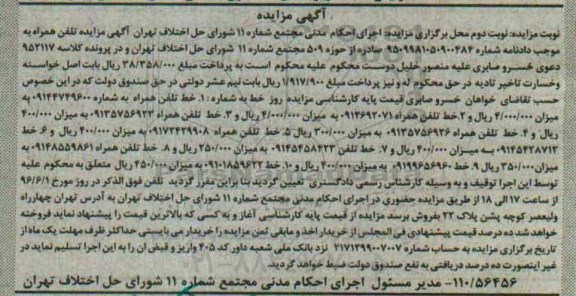 آگهی مزایده
نوبت مزایده: نوبت دوم محل برگزاری مزایده: اجرای احکام مدنی مجتمع شماره ۱۱ شورای حل اختلاف تهران آگهی مزایده تلفن همراه به
موجب دادنامه شماره ۹۵۰۹۹۸۱۰۵۰۹۰۰۴۸۴ صادره از حوزه ۵۰۹ مجتمع شماره ۱۱ شورای حل اختلاف تهران و در پرونده کلاسه ۹۵۲۱۱۷
دعوی خسرو صابری علیه منصور خلیل دوست محکوم علیه محکوم است به پرداخت مبلغ ۳۸/۳۵۸/۰۰۰ ریال بابت اصل خواسته
وخسارت تاخیر تادیه در حق محکوم له و نیز پرداخت مبلغ ۱/۹۱۷/۹۰۰ ریال بابت نیم عشر دولتی در حق صندوق دولت که در این خصوص
حسب تقاضای خواهان خسرو صابری قیمت پایه کارشناسی مزایده روز خط به شماره: ۱. خط تلفن همراه به شماره ۰۹۱۴۴۷۴۹۶۰۰ به
میزان ۴/۰۰۰/۰۰۰ ریال و ۲.خط تلفن همراه ۰۹۱۴۶۹۲۰۷۱ به میزان ۴/۰۰۰/۰۰۰ ریال و ۳. خط تلفن همراه ۰۹۱۳۵۷۵۶۹۲۲ به میزان ۴۰۰/۰۰۰
ریال و ۴. خط تلفن همراه ۰۹۱۳۵۷۵۶۹۲۶ به میزان ۳۰۰/۰۰۰ ریال ۵. خط تلفن همراه ۰۹۱۷۲۴۲۹۹۰۸ به میزان ۴۰۰/۰۰۰ ریال و ۶. خط
۰۹۱۴۵۴۲۸۷۱۲ به میزان ۴۰۰/۰۰۰ ریال و ۷. خط تلفن ۰۹۱۴۵۴۵۸۴۲۳ به میزان ۲۵۰/۰۰۰ ریال و ۸. خط تلفن همراه ۰۹۱۴۸۵۵۹۸۶۱ به
میزان ۳۵۰/۰۰۰ ریال ۹. خط ۰۹۱۹۹۶۵۶۹۶۰ به میزان ۴۰۰/۰۰۰ ریال و ۱۰. خط ۰۹۰۱۰۸۵۹۶۲۲ به میزان ۴۵۰/۰۰۰ ریال متعلق به محکوم علیه
توسط این اجرا توقیف و به وسیله کارشناس رسمی دادگستری تعیین گردید بنا براین مقرر گردید تلفن فوق الذکر در روز مورخ ۹۶/۶/۱
از ساعت ۱۷ الی ۱۸ از طریق مزایده حضوری در اجرای احکام مدنی مجتمع شماره ۱۱ شورای حل اختلاف تهران به آدرس تهران چهارراه
ولیعصر کوچه پشن پلاک ۲۲ بفروش برسد مزایده از قیمت پایه کارشناسی آغاز و به کسی که بالاترین قیمت را پیشنهاد نماید فروخته
خواهد شد ده درصد قیمت پیشنهادی فی المجلس از خریدار اخذ و مابقی ثمن مزایده را خریدار می بایستی حداکثر ظرف مهلت یک ماه از
تاریخ برگزاری مزایده به حساب شماره ۲۱۷۱۲۹۹۰۰۷۰۰۷ نزد بانک ملی شعبه داور کد ۴۰۵ واریز و قبض آن را به این اجرا تسلیم نماید در
غیر اینصورت ده درصد دریافتی به نفع صندوق دولت ضبط خواهد گردید.
۱۱۰/۵۶۴۵۶- مدیر مسئول اجرای احکام مدنی مجتمع شماره ۱۱ شورای حل اختلاف تهران